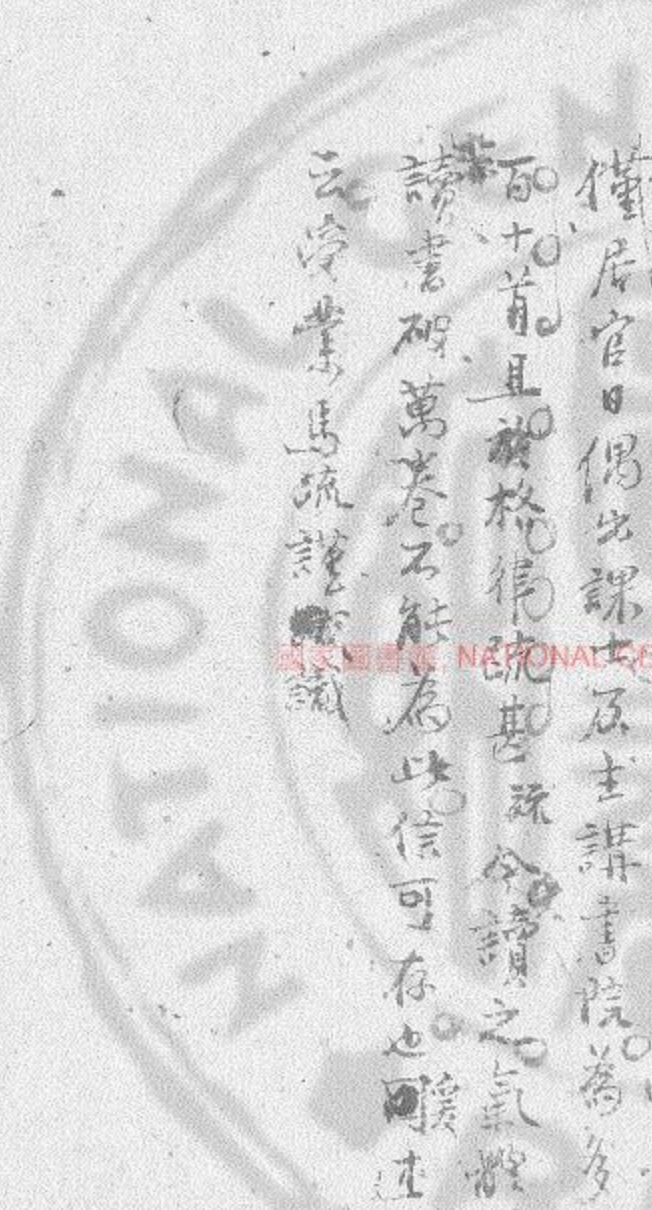 僅居官日偶出課士及主講書院為多
百十首且於格律疏甚疏今讀之氣體
讀書破萬卷不能為此信可存也
云受業馬疏謹識
國家圖書館, NATIONAL CE
NATIONAL CEN